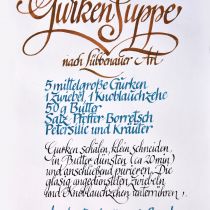 Gurkensuppe
nach Lübbenauer Art
5 mittelgroße Gurken
1 Zwiebel, 1 Knoblauchzehe
50 g Butter
Salz Pfeffer Borretsch
Petersilie und Kräuter
Gurken schälen, klein schneiden,
in Butter dünsten (ca 20 min)
und anschließend pürieren. Die
glasig angedünsteten Zwiebeln
und Knoblauchzehen unterrühren,